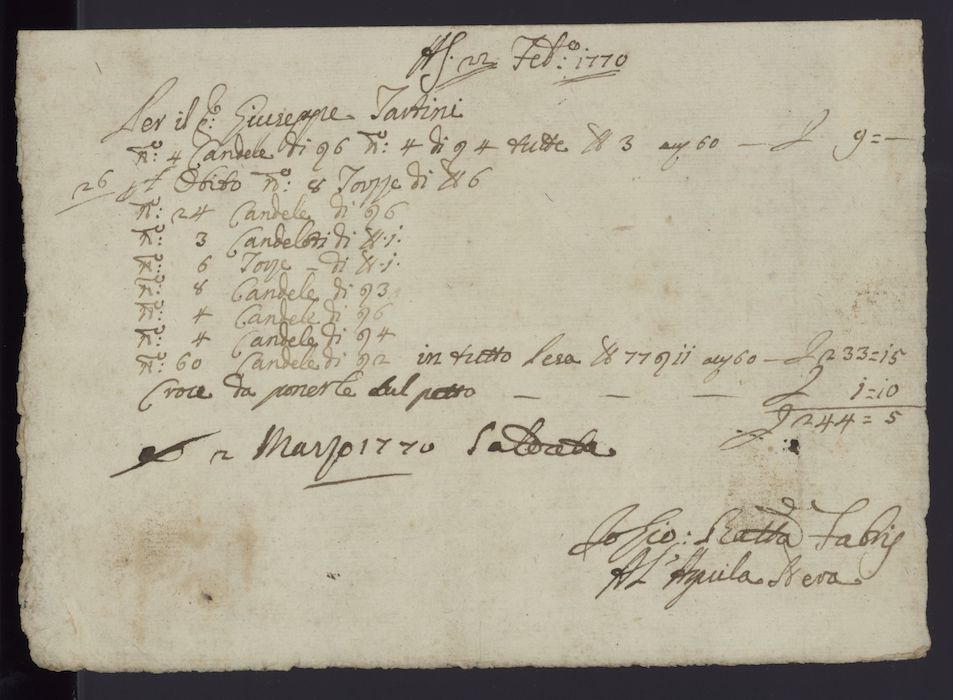 Ad. 22 Feb.o 1770
Per il S.r Giuseppe Tartini
N.o: 4 Candele di 96 N.o: 4 di 94 tutte 3 a 60 — £ 9=—
26 Obito N.o: 8 Torze di 6
N.o: 24 Candele di 96
N.o: 3 Candeloti di 1:
N.o: 6 Torze – di 1:
N.o: 8 Candele di 93
N.o: 4 Candele di 96
N.o: 4 Candele di 94
N.o: 60 Candele di 92 in tutto Pesa 77 911 a 60 — £ 233=15
Croce da ponerle sul petto — — — £ 1=10
£ 244=5
2 Marzo 1770 Saldata
Io Gio: Batta Fabris
All' Aquila Nera